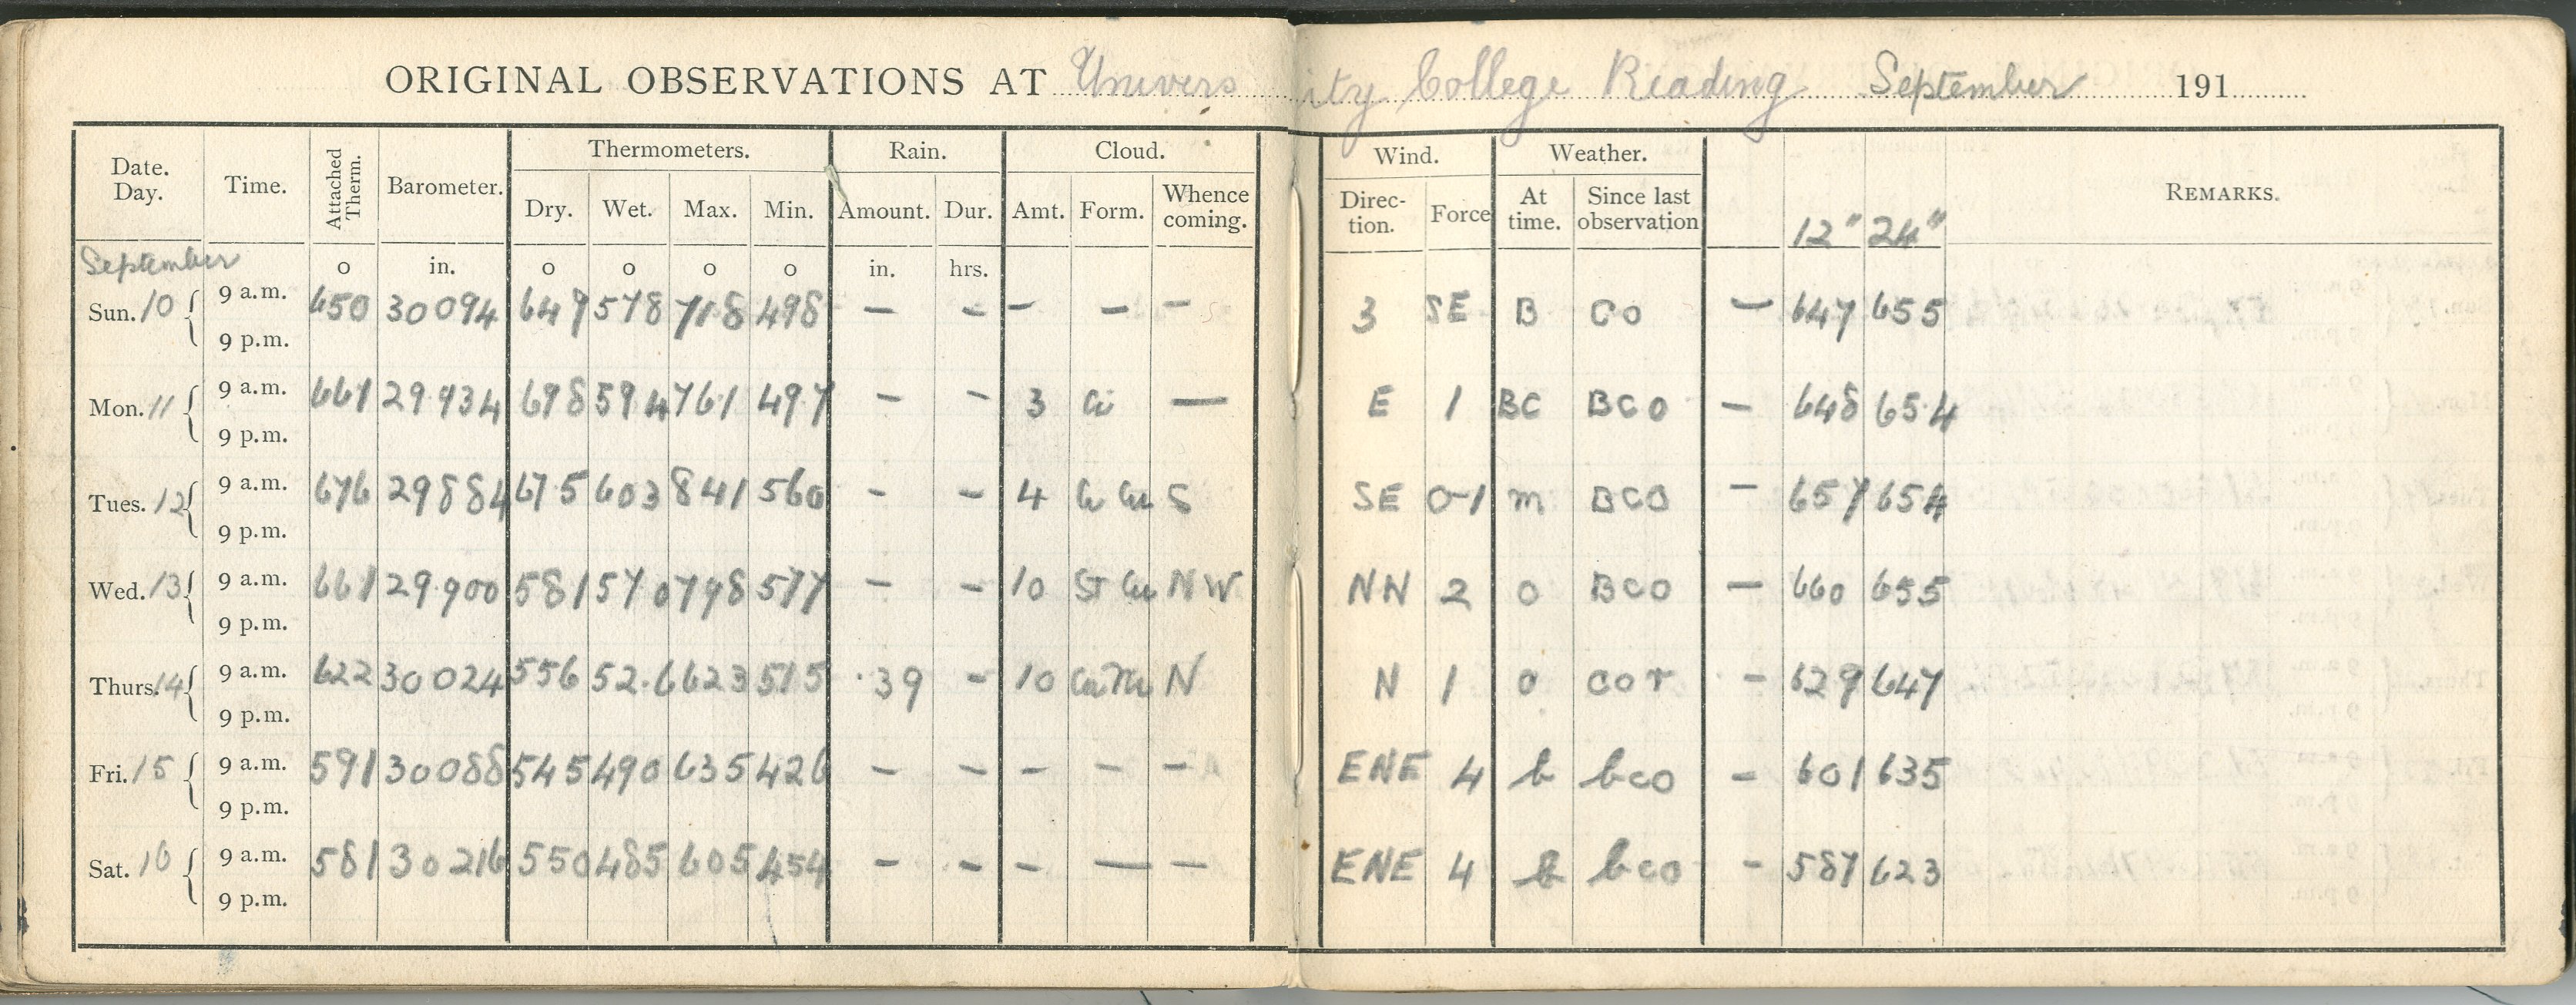 ORIGINAL OBSERVATIONS AT University College Reading September 191
Date. Day. Time. Attached Therm. Barometer. Thermometers. Rain. Cloud. Wind. Weather. REMARKS.
Dry. Wet. Max. Min. Amount. Dur. Amt. Form. Whence coming. Direction. Force At time. Since last observation 12" 24"
September o in. o o o o in. hrs.
Sun. 10 9 a.m. 650 30094 649 578 718 498 — — — — — 3 SE B CO — 647 655
9 p.m.
Mon. 11 9 a.m. 661 29.934 698 594 761 497 — — 3 Ci — E 1 BC BCO — 648 65.4
9 p.m.
Tues. 12 9 a.m. 676 29884 67.5 603 841 560 — — 4 Ci Cu S SE 0-1 m BCO — 657 654
9 p.m.
Wed. 13 9 a.m. 661 29.900 581 570 798 577 — — 10 St Cu NW NN 2 o BCO — 660 655
9 p.m.
Thurs. 14 9 a.m. 622 30024 556 52.6 623 515 .39 — 10 N N 1 o cor — 629 647
9 p.m.
Fri. 15 9 a.m. 591 30088 545 490 635 426 — — — — — ENE 4 b bco — 601 635
9 p.m.
Sat. 16 9 a.m. 581 30216 550 485 605 454 — — — — — ENE 4 b bco — 587 623
9 p.m.